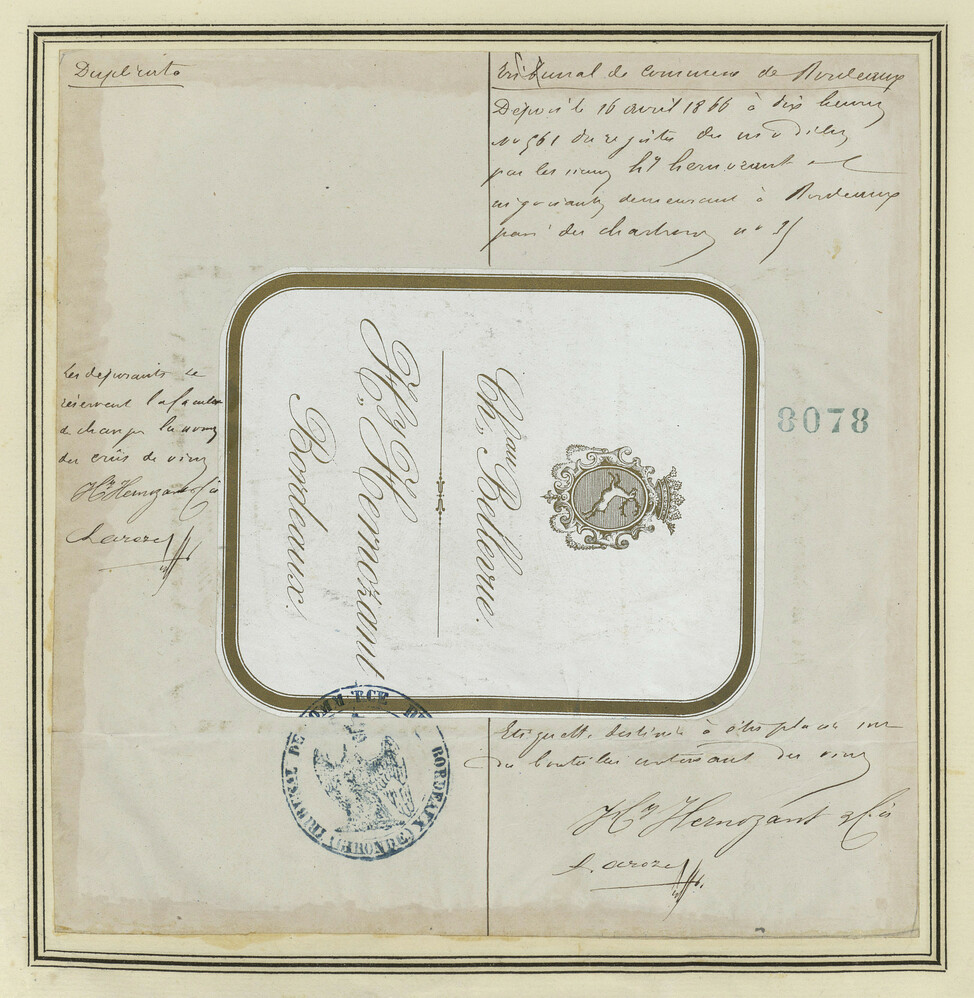 Duplicata
Tribunal de commerce de Bordeaux
Déposé le 16 avril 1866 à dix heures
no 961 du registre des modèles
par les sieurs hy hernozant et
négociants demeurant à Bordeaux
pavé des chartrons no 35
8078
Les déposants se
réservent la faculté
de changer les noms
des crûs de vins
Hy Hernozant & Cie
Laroze
Chau Bellevue.
Hry Hernozant
Bordeaux.
TRIBUNAL DE COMMERCE DE BORDEAUX (GIRONDE)
Etiquette destinée à être placée sur
des bouteilles contenant des vins
Hy Hernozant & Cie
Laroze